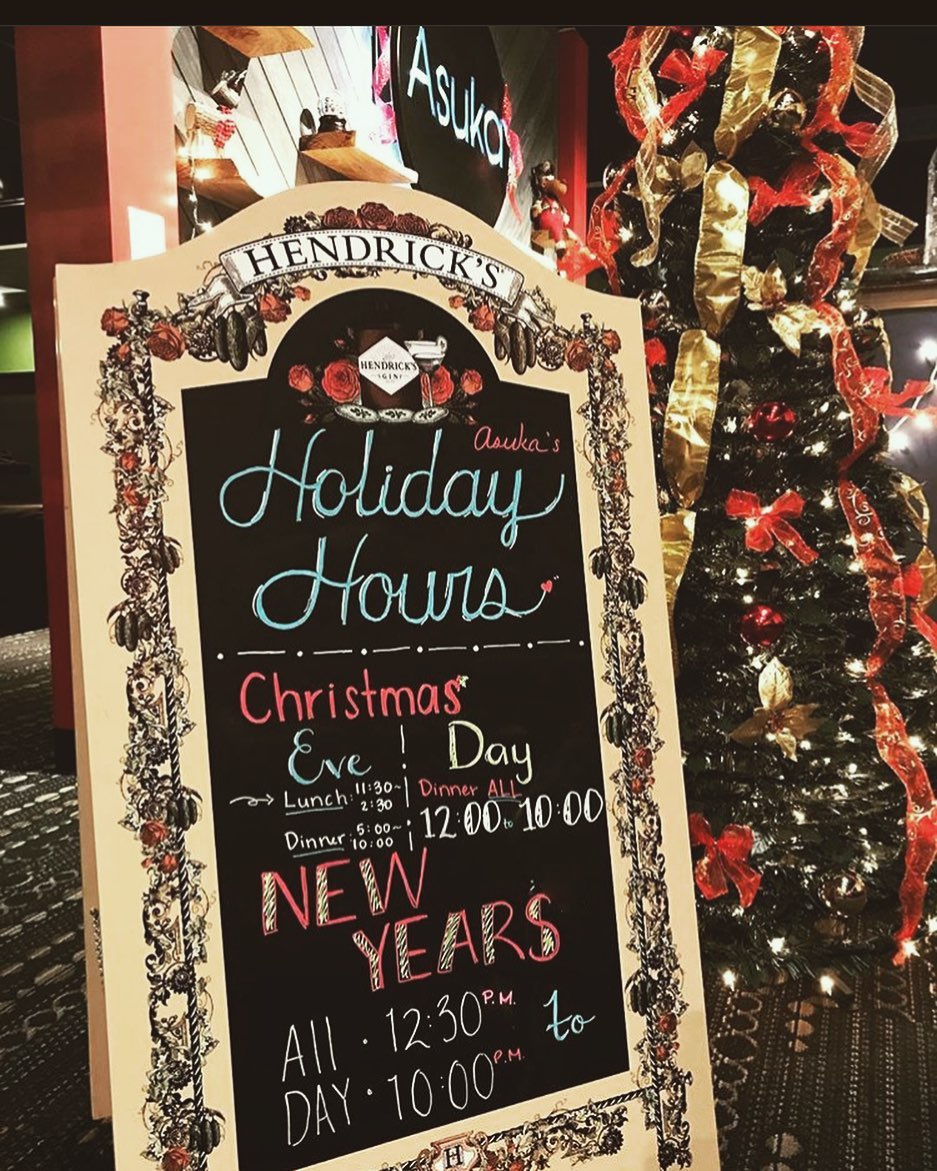 Asuka
HENDRICK'S
HENDRICK'S
GIN
Asuka's
Holiday
Hours
Christmas
Eve
Lunch: 11:30~
2:30
Dinner: 5:00~
10:00
Day
Dinner ALL
12:00 to 10:00
NEW
YEARS
All · 12:30 P.M. to
DAY · 10:00 P.M.
H